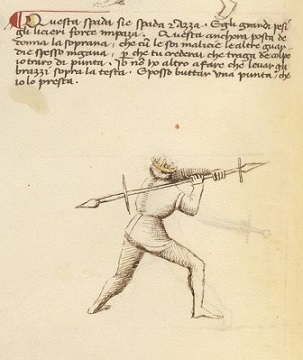 Questa spada sie spada e Azza. E gli grandi pesi
gli liçieri forte impaza. Questa anchora posta de
donna la soprana, che cum le soi malicie le altre guar-
die spesso ingana, per che tu crederai che traga de colpo
io traro di punta. Io non ho altro a fare che levar gli
brazzi sopra la testa. E posso buttar una punta che
io l'o presta.